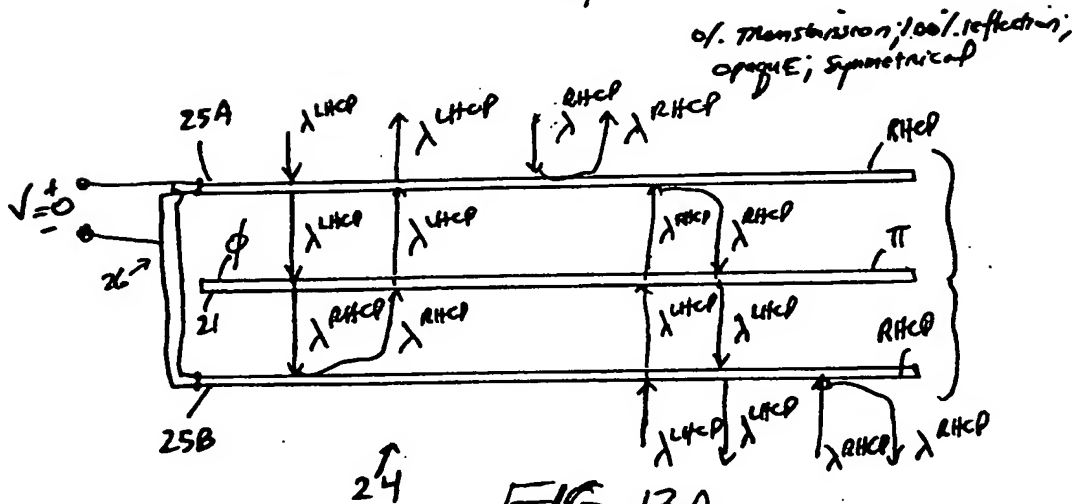 0% Transmission; 100% reflection;
opaque; Symmetrical
25A
λ^LHCP
λ^LHCP
λ^RHCP
λ^RHCP
RHCP
+
V=0
-
26
φ
21
λ^LHCP
λ^LHCP
λ^RHCP
λ^RHCP
π
λ^RHCP
λ^RHCP
λ^LHCP
λ^LHCP
RHCP
25B
λ^LHCP
λ^LHCP
λ^RHCP
λ^RHCP
24